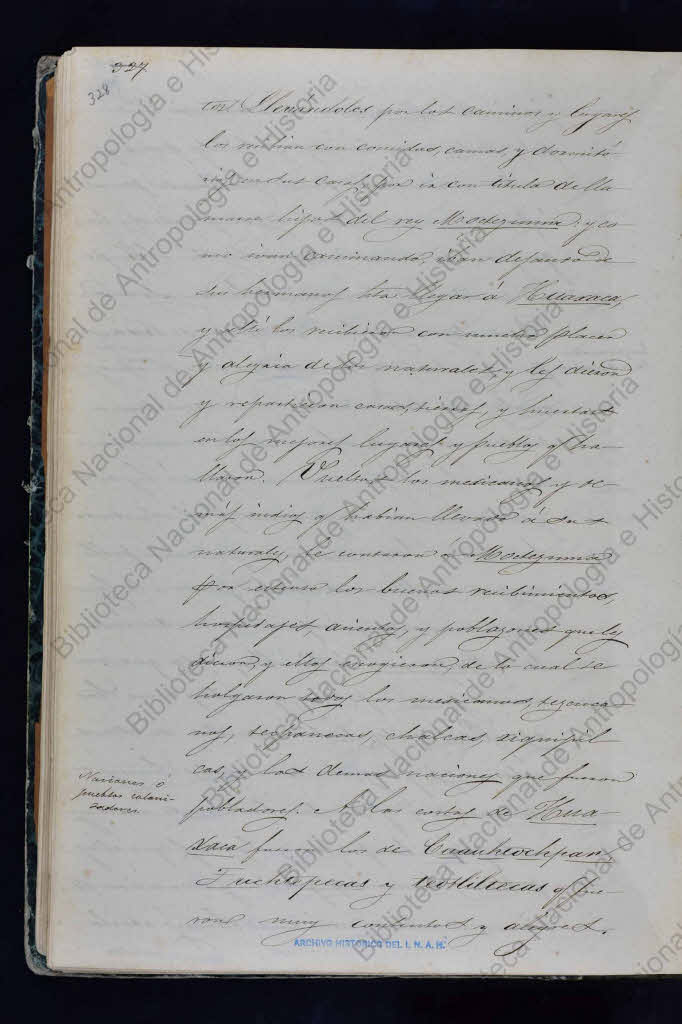 327
328
tos. Llevandoles por los caminos y lugares
los recibian con comidas, camas, y dormito-
rios en sus casas, por ir con titulo de lla-
marse hijos del rey Moctezuma: y co-
mo ivan caminando, ivan dejando de
sus hermanos hta llegar á Huaxaca,
y allí los recibieron con mucho placer
y alegria de los naturales, y les dieron
y repartieron casas, tierras, y huertas
en los mejores lugares y pueblos q ha-
llaron. Vueltos los mexicanos y de-
más indios q habian llevado á sus
naturales, le contaron á Moctezuma
por estenso los buenos recibimientos,
hospedajes, asientos, y poblazones que les
dieron, y ellos escogieron, de lo cual se
holgaron todos los mexicanos, tezcuca
nos, tecpanecas, chalcas, xiquipil
cas, y los demas naciones que fueron
pobladores. A las costas de Hua-
xaca fueron los de Cuauhtochpan,
Tuchtepecas y teotlilrecas q fue-
ron muy contentos y alegres.
Naciones ó
pueblos coloni-
zadores.
ARCHIVO HISTORICO DEL I. N. A. H.
Biblioteca Nacional de Antropología e Historia